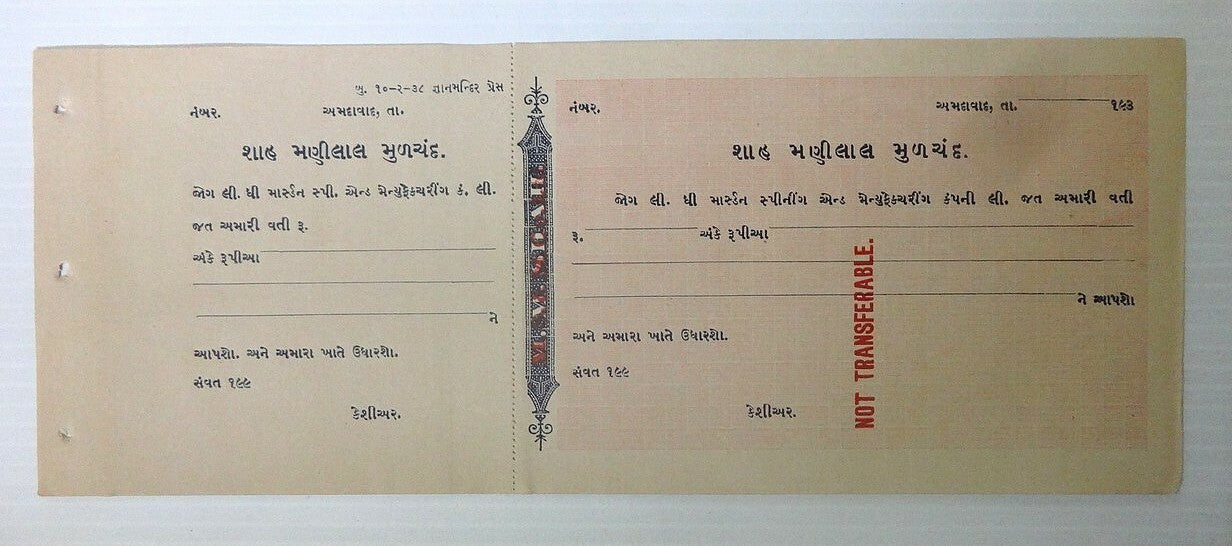 બુ. ૧૦-૨-૩૮ જ્ઞાનમન્દિર પ્રેસ
નંબર. અમદાવાદ, તા.
શાહ મણીલાલ મુળચંદ.
જોગ લી. ધી માર્સ્ડન સ્પી. એન્ડ મેન્યુફેક્ચરીંગ કં. લી.
જત અમારી વતી રૂ.
અંકે રૂપીઆ
ને
આપશો. અને અમારા ખાતે ઉધારશો.
સંવત ૧૯૯
કેશીઅર.
નંબર. અમદાવાદ, તા. ૧૯૩
શાહ મણીલાલ મુળચંદ.
જોગ લી. ધી માર્સ્ડન સ્પીનીંગ એન્ડ મેન્યુફેક્ચરીંગ કંપની લી. જત અમારી વતી
રૂ. અંકે રૂપીઆ
ને આપશો
અને અમારા ખાતે ઉધારશો.
સંવત ૧૯૯
કેશીઅર.
NOT TRANSFERABLE.